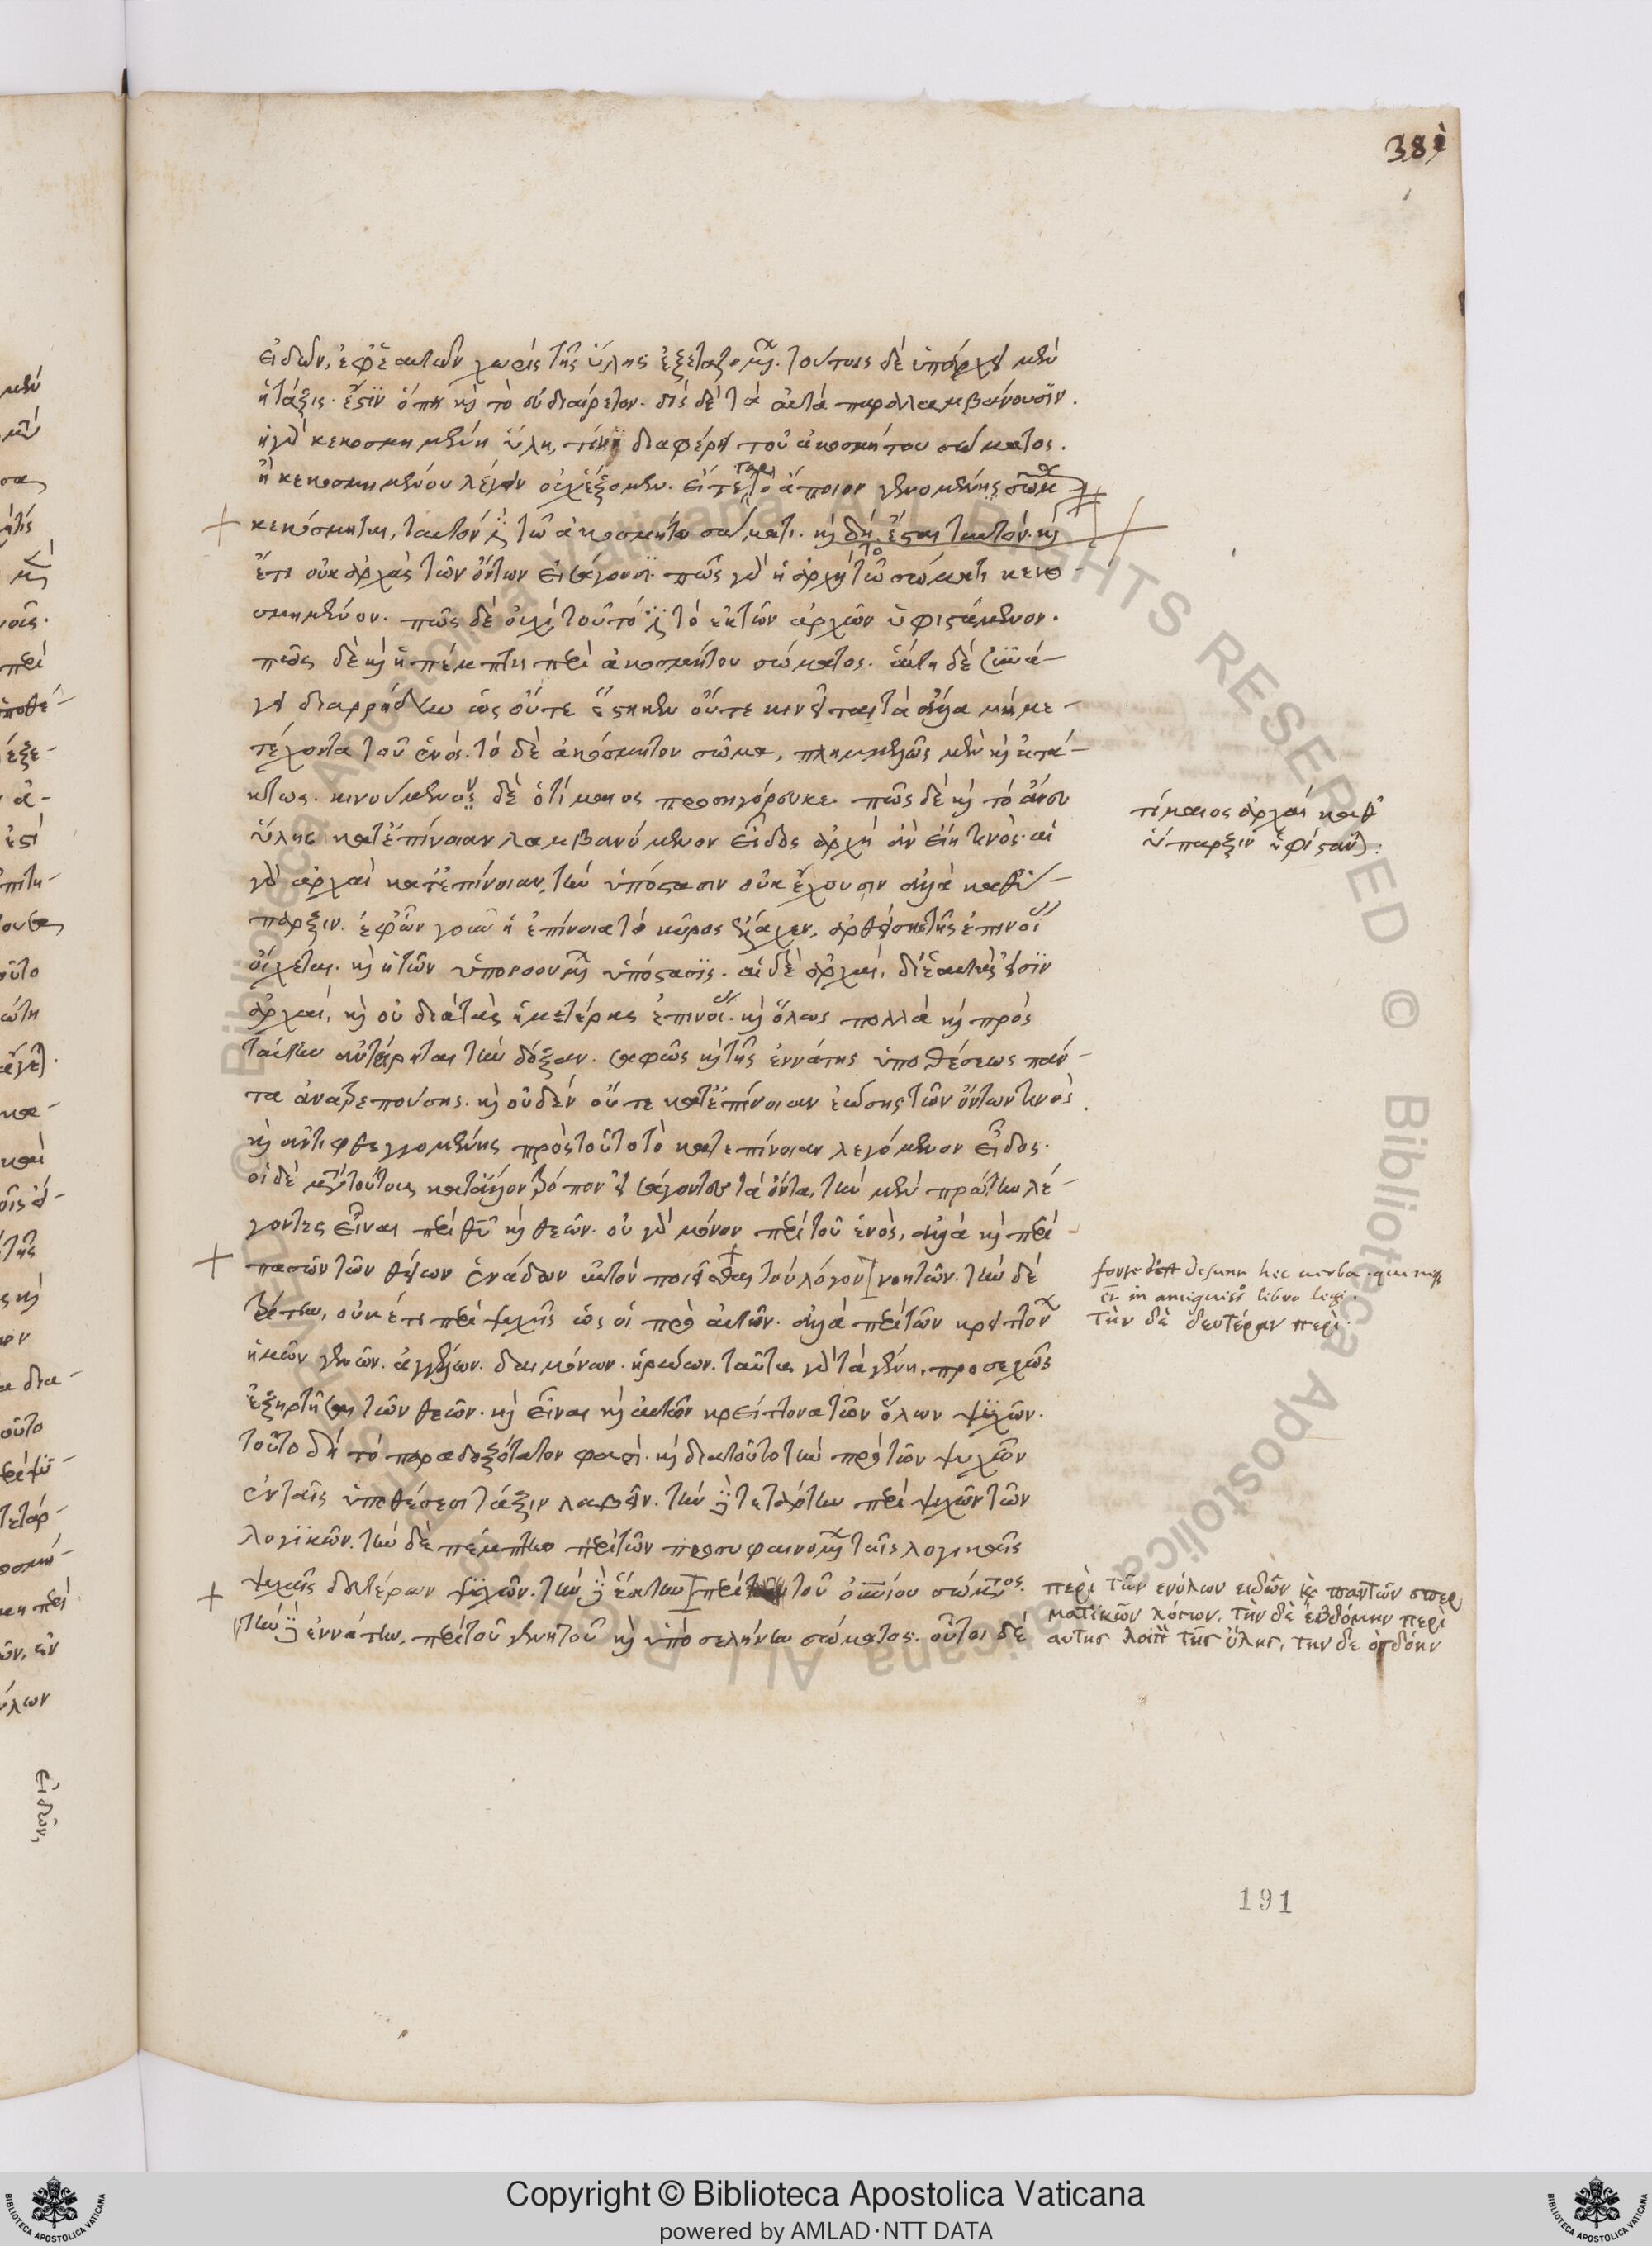 381
εἰδῶν, ἐφ' ἑαυτῶν χωρὶς τῆς ὕλης ἐξεταζομ. τούτοις δὲ ὑπάρχει μὲν
ἡ τάξις. ἔστιν ὅπῃ καὶ τὸ εὐδιαίρετον. δὶς δὲ τὰ αὐτὰ παραλαμβάνουσιν.
ἡ γὰρ κεκοσμημένη ὕλη, τίνι διαφέρει τοῦ ἀκοσμήτου σώματος.
ἢ κεκοσμημένου λέγειν οὐχ ἕξομεν. εἴτε γὰρ τὸ ἄποιον γενομένης σῶμα
κεκόσμηται, ταυτόν ἐστι τῶ ἀκοσμήτω σώματι. καὶ δὴ ἔσται ταυτόν. καὶ
ἔτι οὐκ ἀρχὰς τῶν ὄντων εἰσάγουσι. πῶς γὰρ ἡ ἀρχὴ τῶ σώματι τὸ κεκο-
σμημένον. πῶς δὲ οὐχὶ τοῦτό ἐστι τὸ ἐκ τῶν ἀρχῶν ὑφιστάμενον.
πῶς δὲ καὶ ἡ πέμπτη περὶ ἀκοσμήτου σώματος. αὕτη δὲ συνά-
γει διαρρήδην ὡς οὔτε ἕστηκεν οὔτε κινεῖται τὰ ἄλλα μὴ με-
τέχοντα τοῦ ἑνός. τὸ δὲ ἀκόσμητον σῶμα, πλημμελῶς μὲν καὶ ἀτά-
κτως. κινούμενον δὲ ὁ τίμαιος προσηγόρευκε. πῶς δὲ καὶ τὸ ἄνευ
ὕλης κατ' ἐπίνοιαν λαμβανόμενον εἶδος ἀρχὴ ἂν εἴη τινός. αἱ
γὰρ ἀρχαὶ κατ' ἐπίνοιαν, τὴν ὑπόστασιν οὐκ ἔχουσιν ἀλλὰ καθ' ὕ-
παρξιν. ἐφ' ὧν γοῦν ἡ ἐπίνοια τὸ κῦρος ἔλαχεν, ἀρθείσης τῆς ἐπινοί
οἴχεται. καὶ ἡ τῶν ὑπονοουμ ὑπόστασις. αἱ δὲ ἀρχαὶ, δι' ἑαυτάς εἰσιν
ἀρχαὶ, καὶ οὐ διὰ τὰς ἡμετέρας ἐπινοί. καὶ ὅλως πολλὰ καὶ πρὸς
ταύτην ἀντείρηται τὴν δόξαν. σαφῶς καὶ τῆς ἐννάτης ὑποθέσεως πάν-
τα ἀνατρεπούσης. καὶ οὐδὲν οὔτε κατ' ἐπίνοιαν ἐώσης τῶν ὄντων τινὸς
καὶ ἀντιφθεγγομένης πρὸς τοῦτο τὸ κατ' ἐπίνοιαν λεγόμενον εἶδος.
οἱ δὲ μετὰ τούτους κατ' ἄλλον τρόπον εἰσάγοντες τὰ ὄντα, τὴν μὲν πρώτην λέ-
γοντες εἶναι περὶ θεοῦ καὶ θεῶν. οὐ γὰρ μόνον περὶ τοῦ ἑνὸς, ἀλλὰ καὶ περὶ
πασῶν τῶν θείων ἑνάδων αὐτὸν ποιεῖσθαι τὸν λόγον νοητῶν. τὴν δὲ
τρίτην, οὐκέτι περὶ ψυχῆς ὡς οἱ πρὸ αὐτῶν. ἀλλὰ περὶ τῶν κρειττόν
ἡμῶν γενῶν. ἀγγέλων. δαιμόνων. ἡρώων. ταῦτα γὰρ τὰ γένη, προσεχῶς
ἐξηρτῆσθαι τῶν θεῶν. καὶ εἶναι καὶ αὐτῶν κρείττονα τῶν ὅλων ψυχῶν.
τοῦτο δὴ τὸ παραδοξότατον φασὶ. καὶ διὰ τοῦτο τὴν πρὸ τῶν ψυχῶν
ἐν ταῖς ὑποθέσεσι τάξιν λαβεῖν. τὴν δὲ τετάρτην περὶ ψυχῶν τῶν
λογικῶν. τὴν δὲ πέμπτην περὶ τῶν προσυφαινομ ταῖς λογικαῖς
ψυχαῖς δευτέρων ψυχῶν. τὴν δὲ ἕκτην περὶ τοῦ οὐνίου σώματος.
τὴν δὲ ἐννάτην, περὶ τοῦ γεννητοῦ καὶ ὑπὸ σελήνην σώματος. οὗτοι δὲ
τίμαιος ἀρχαὶ καθ'
ὕπαρξιν ὑφίσταν.
forte desunt hec uerba que
et in antiquiss libro legi.
τὴν δὲ δευτέραν περὶ.
περὶ τῶν ενύλων ειδῶν καὶ παντῶν σπερ
ματικῶν λόγων, τὴν δὲ ἑβδόμην περὶ
αυτης λοιπ τῆς ὕλης, την δε ὀγδόην
εἰδῶν,
191
Copyright © Biblioteca Apostolica Vaticana
powered by AMLAD·NTT DATA